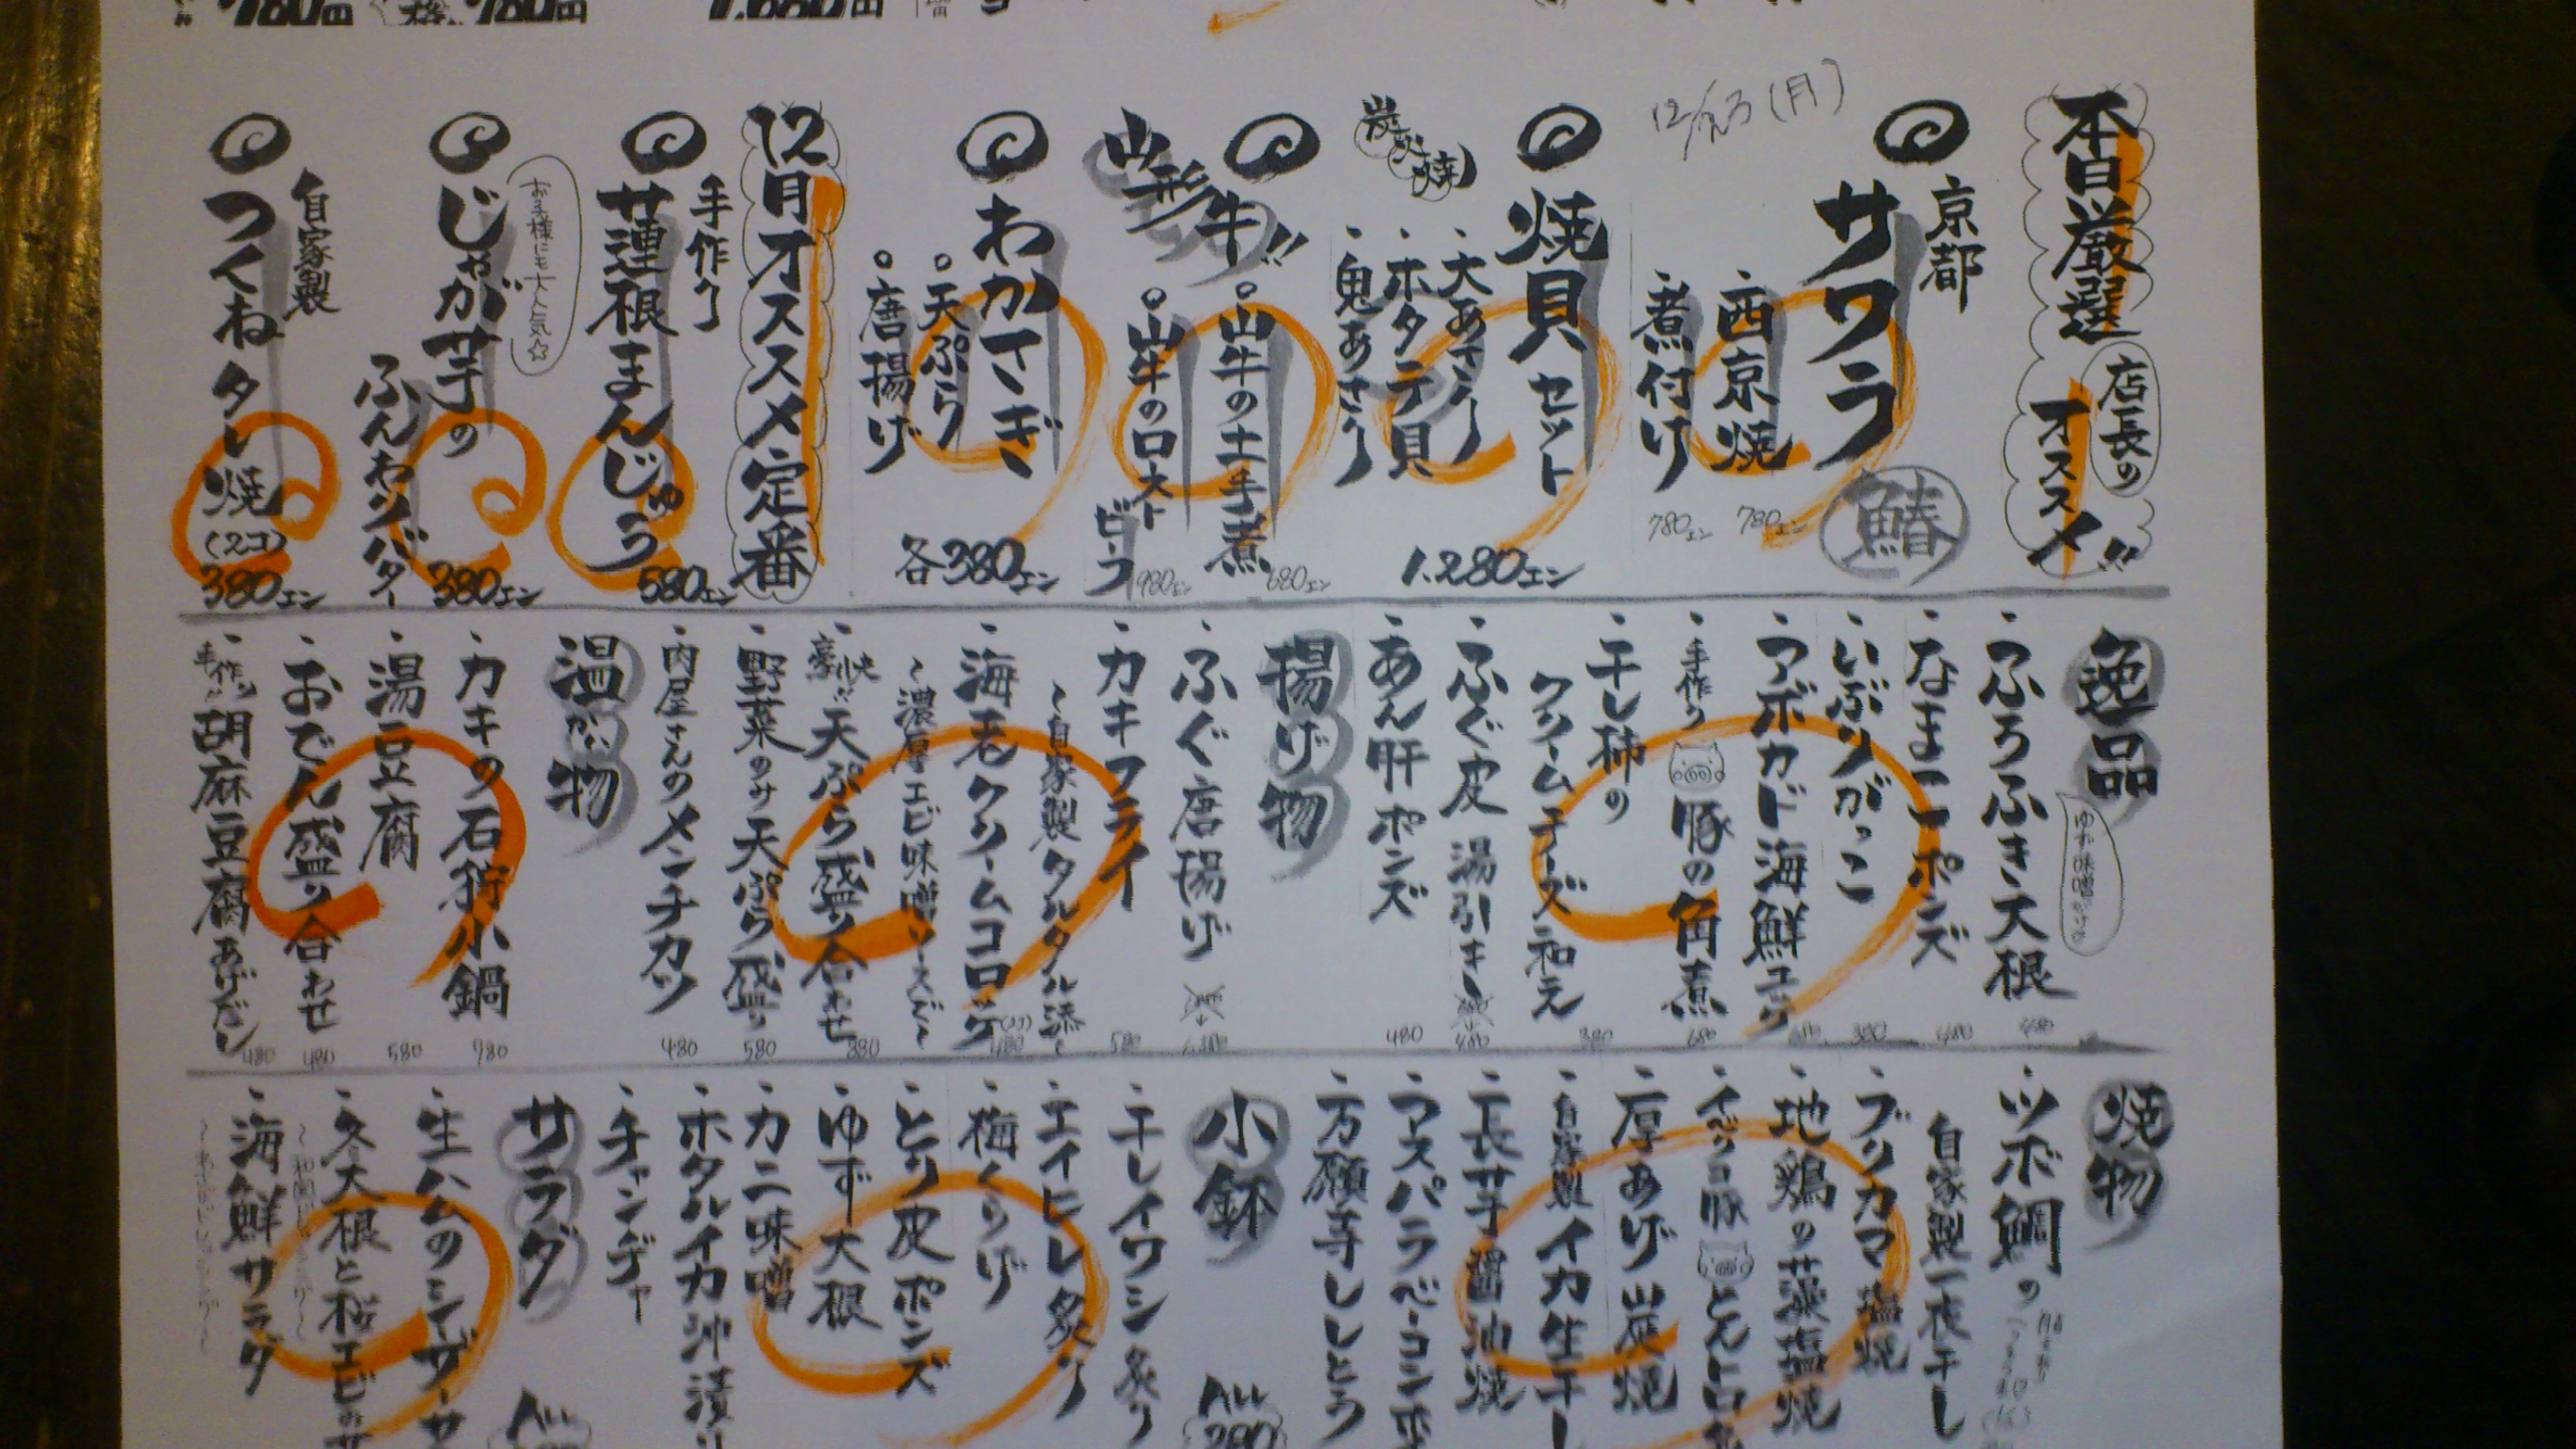 本日厳選
店長の
オススメ!!
京都
サワラ
鰆
・西京焼 780エン
・煮付け 780エン
12/23(月)
焼貝セット
・大あさり
・ホタテ貝
・鬼あさり
1.280エン
炭火焼
山形牛!!
○山牛の土手煮 680エン
○山牛のロストビーフ 980エン
わかさぎ
○天ぷら
○唐揚げ
各380エン
12月オススメ定番
手作り
蓮根まんじゅう
580エン
お子様にも大人気☆
じゃが芋の
ふんわりバター
380エン
自家製
つくねタレ焼
(2コ)
380エン
逸品
ゆず味噌かけ
・ふろふき大根
・なまこポンズ
・いぶりがっこ
・アボカド海鮮ユッケ
手作り豚の角煮
・干し柿の
クリームチーズ和え 380
・ふぐ皮 湯引き
・あん肝ポンズ 480
揚げ物
・ふぐ唐揚げ
・カキフライ 580
〜自家製タルタル添〜
・海老クリームコロッケ
〜濃厚エビ味噌ソースで〜
・豪快!!天ぷら盛り合わせ 880
・野菜のみ天ぷら盛り 580
・肉屋さんのメンチカツ 480
温かい物
・カキの石狩小鍋 780
・湯豆腐 580
・おでん盛り合わせ 480
・手作り胡麻豆腐あげだし 480
焼物
・ツボ鯛の
自家製一夜干し
・ブリカマ塩焼
・地鶏の藻塩焼
・イベリコ豚とんトロ
・厚あげ炭焼
・自家製イカ生干し
・長芋醤油焼
・アスパラベーコン
・万願寺ししとう
小鉢
ALL
・干しイワシ炙り
・エイヒレ炙り
・梅くらげ
・とり皮ポンズ
・ゆず大根
・カニ味噌
・ホタルイカ沖漬け
・チャンヂャ
サラダ
ALL
・生ハムのシーザーサ
・冬大根と桜エビのサ
・海鮮サラダ